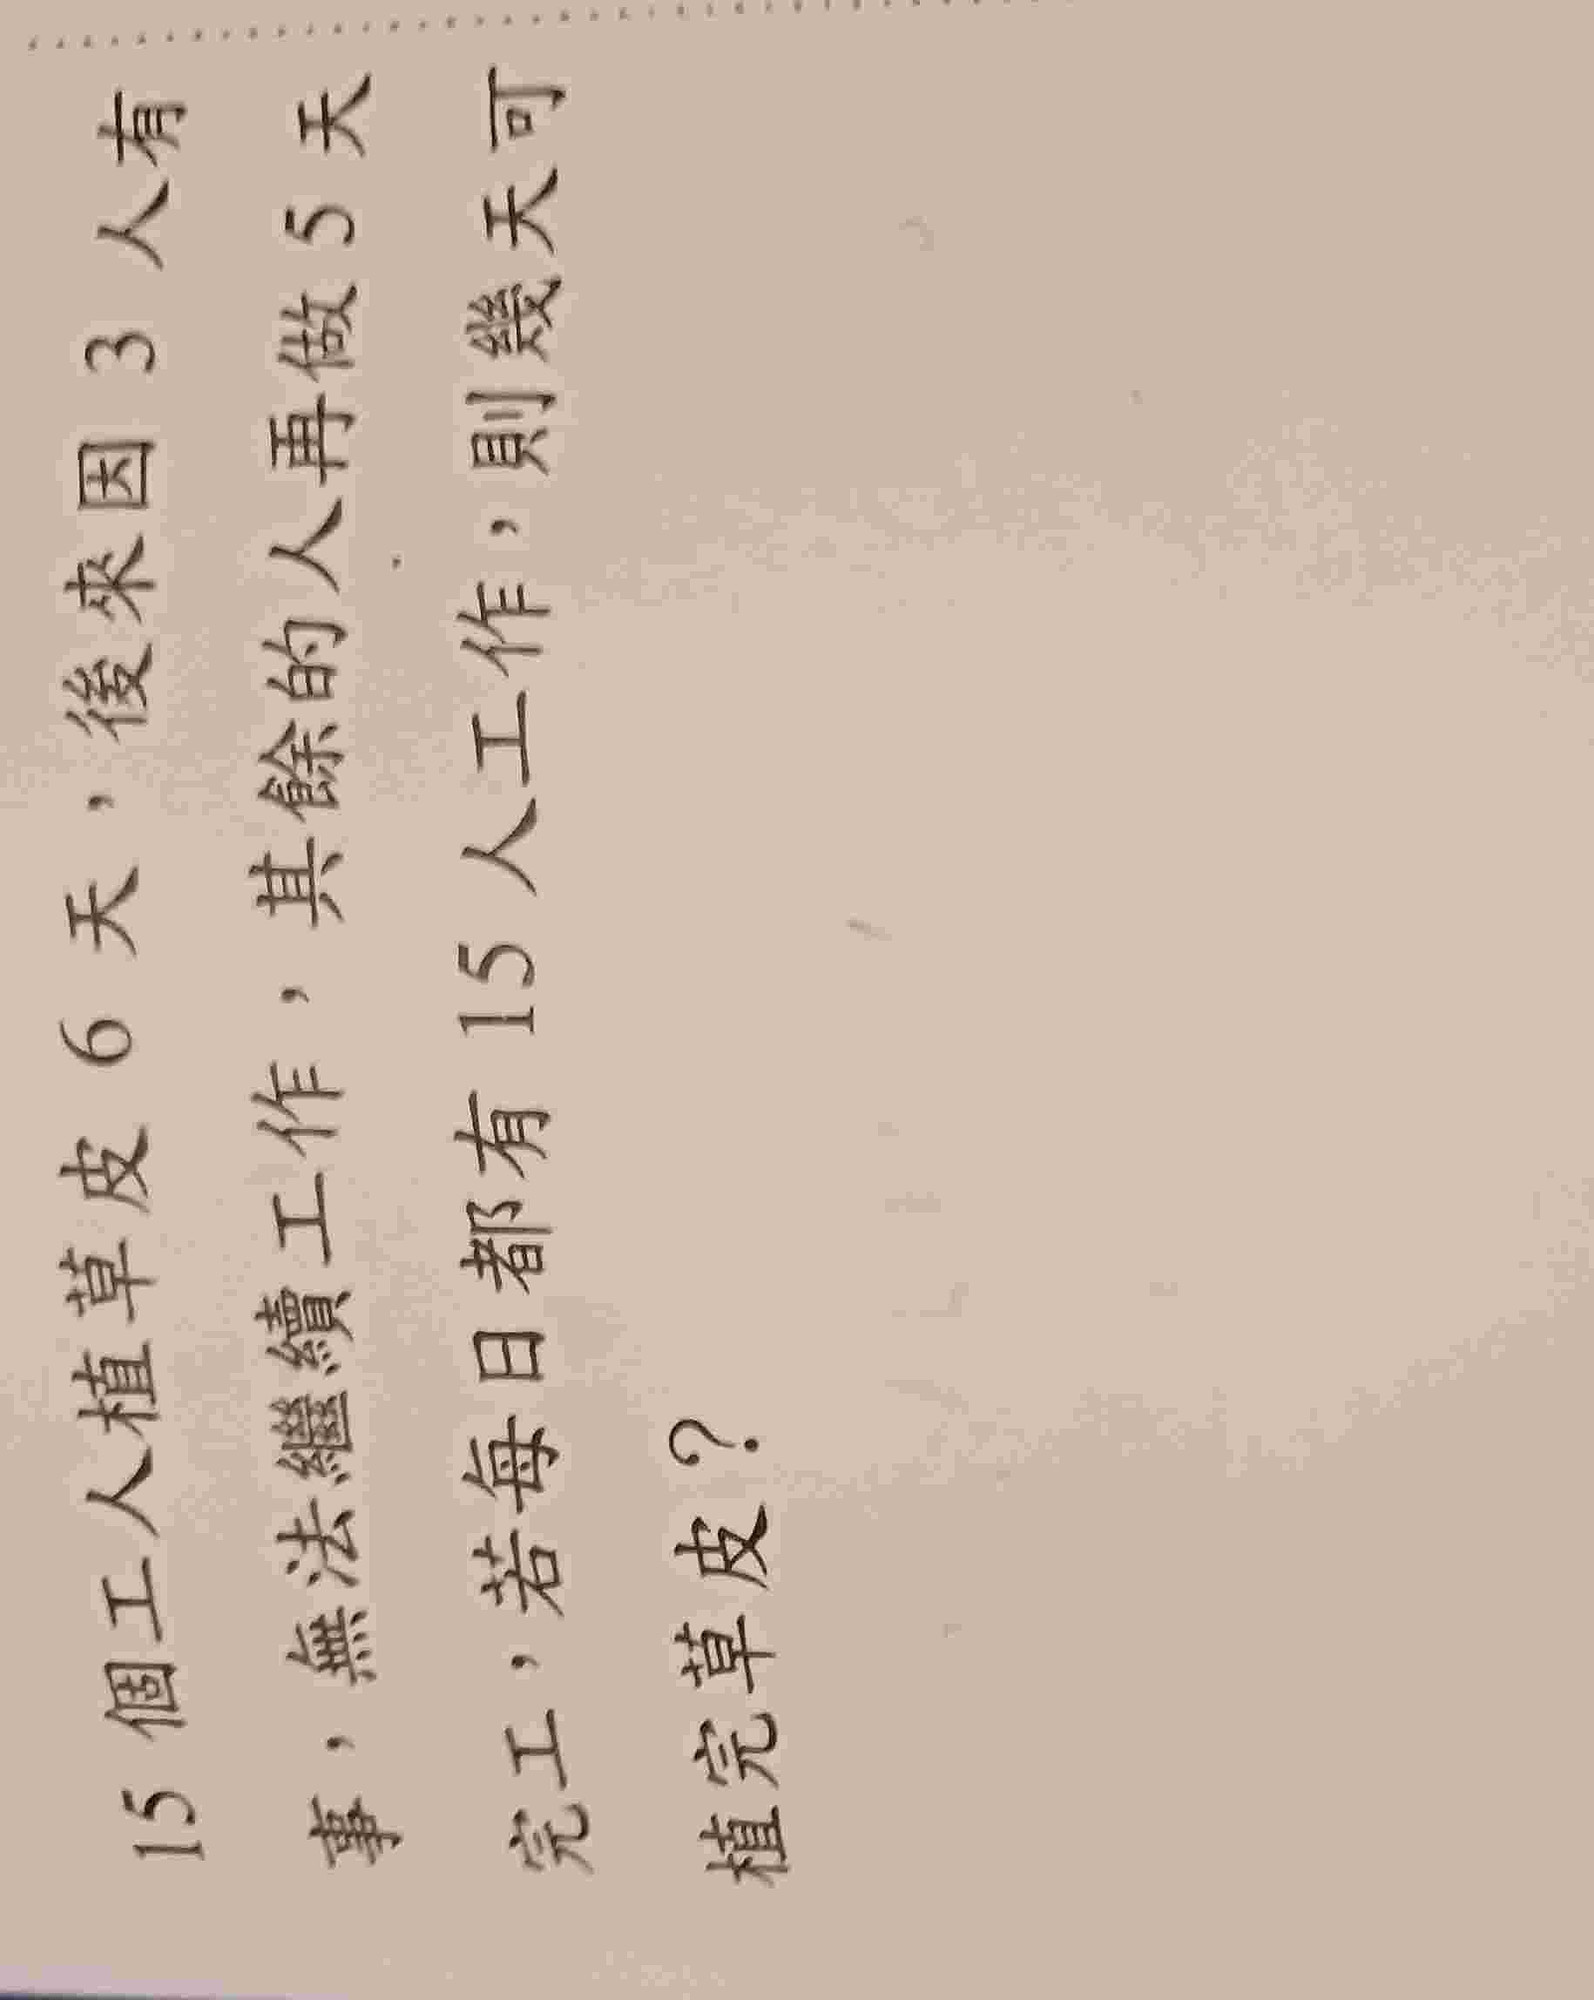 15 個工人植草皮 6 天，後來因 3 人有
事，無法繼續工作，其餘的人再做 5 天
完工，若每日都有 15 人工作，則幾天可
植完草皮？